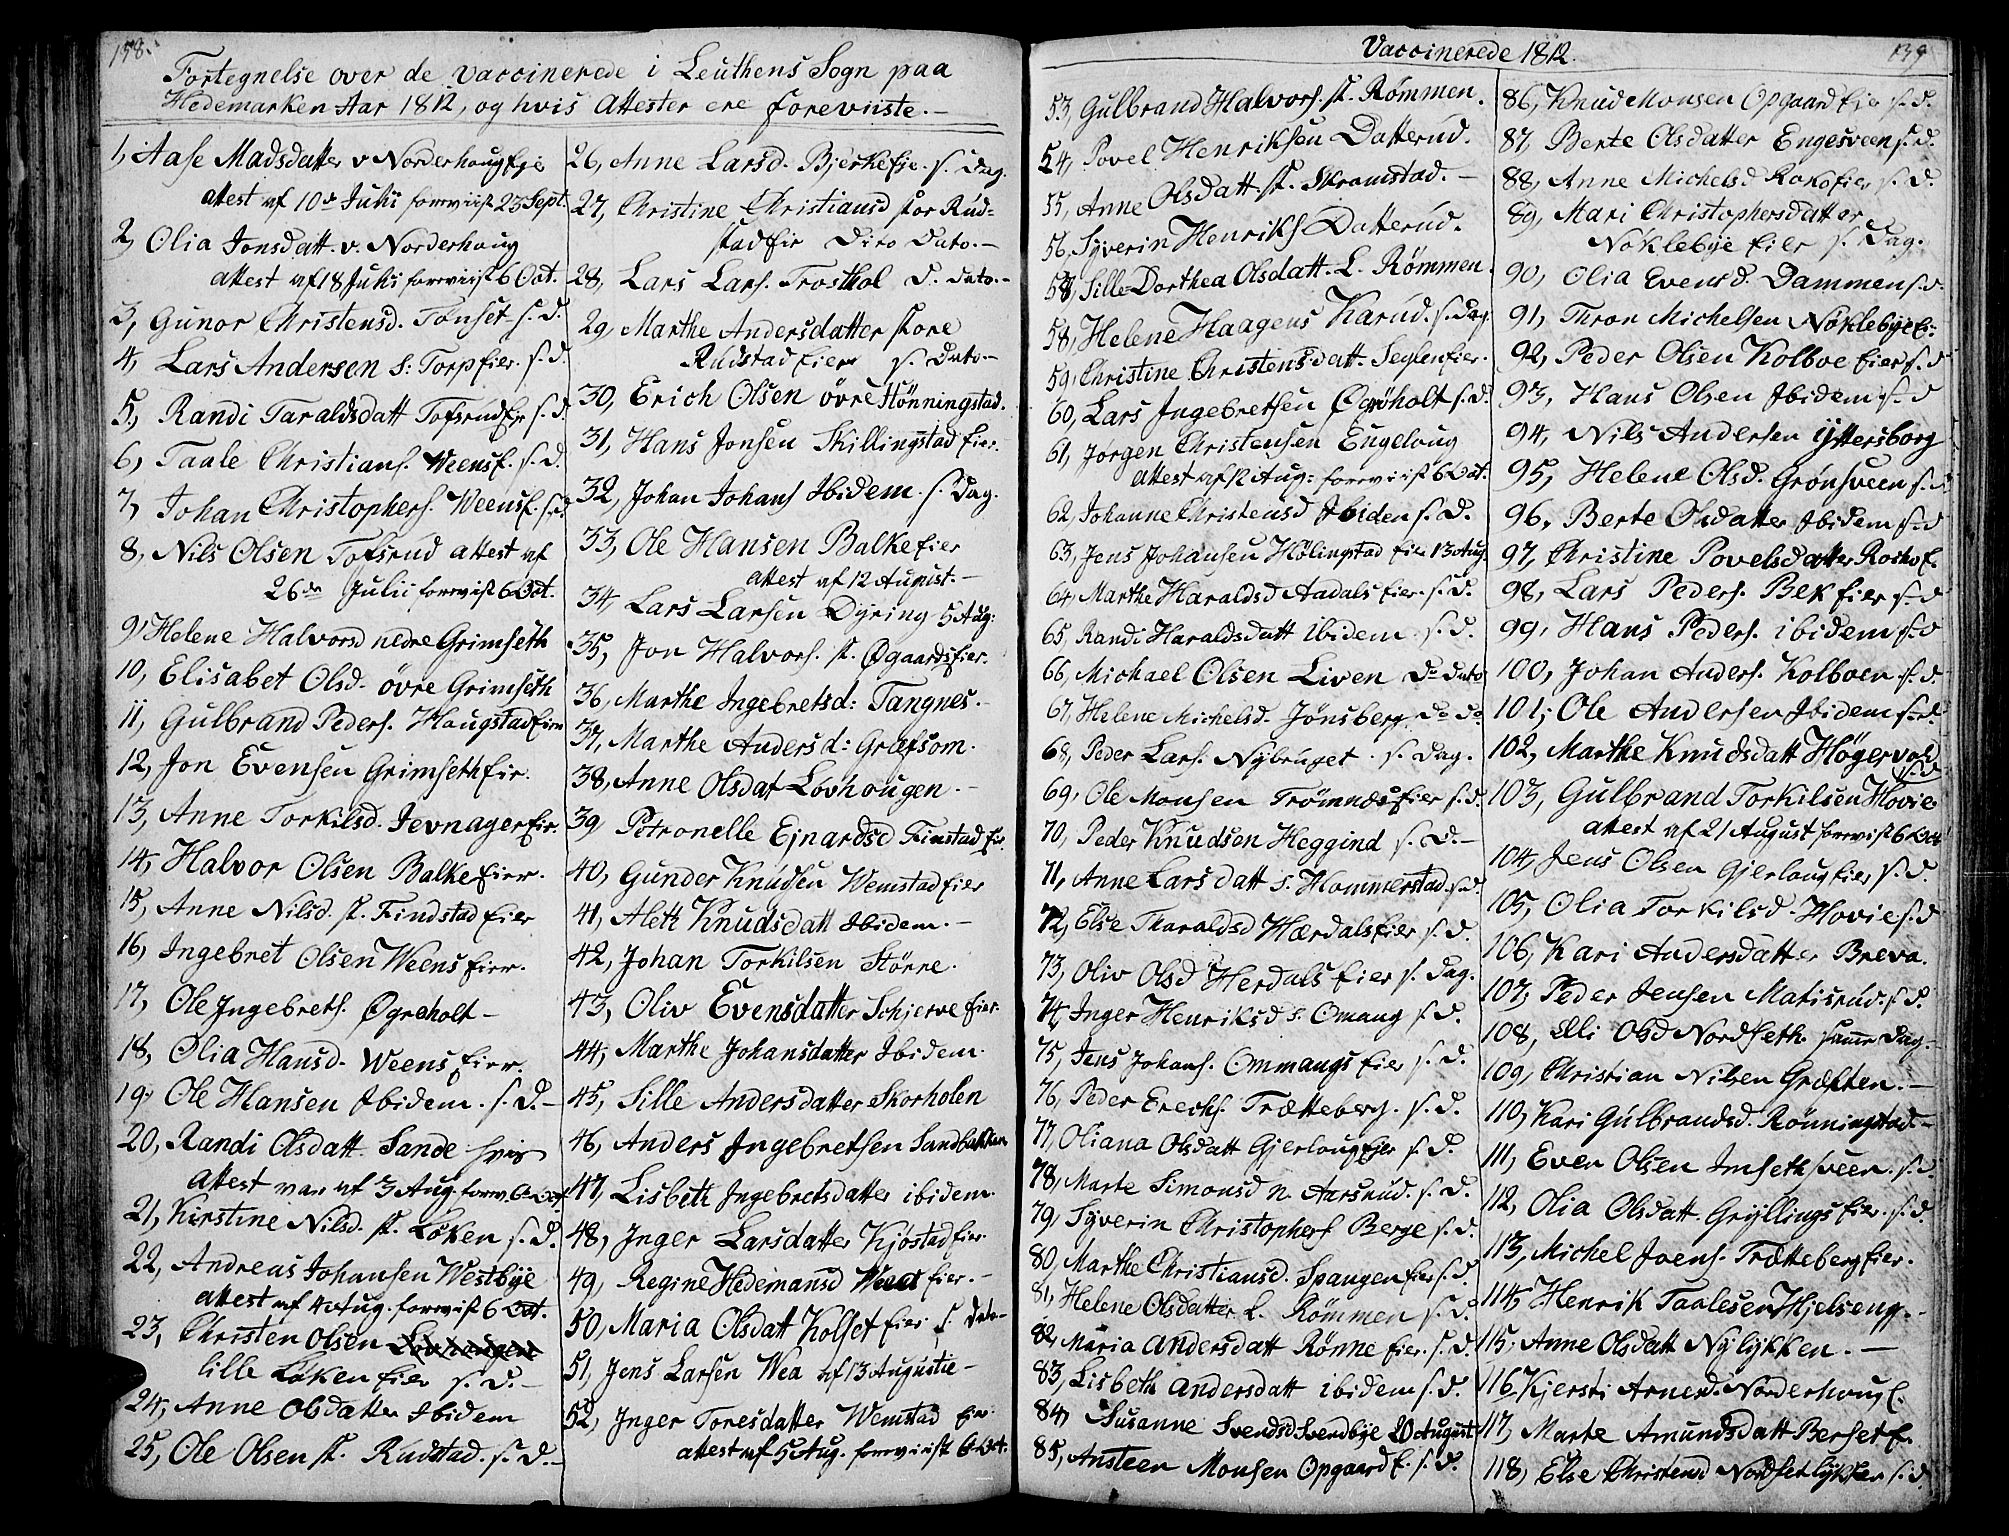 158.
Fortegnelse over de vaccinerede i Leuthens Sogn paa
Hedemarken Aar 1812, og hvis Attester ere foreviiste.-
1, Aase Madsdatter v Norderhoug Eje
Attest af 10de Julii foreviist 23 Sept.
2, Olia Jonsdatt. v. Norderhoug
Attest af 18 Julii foreviist 6 Oct.
3, Gunor Christensd. Tønset s. d.
4, Lars Andersen s: Torp Eier. s. d.
5, Randi Taraldsdatt Tofsrud Ejr s. d.
6, Taale Christians. Weens E. s. d.
7, Johan Christophers. Weens E. s. d.
8, Nils Olsen Tofsrud attest af
26de Julii foreviist 6 Oct.
9, Helene Halvorsd nedre Grimseth
10, Elisabet Olsd. övre Grimseth
11, Gulbrand Peders. Haugstad Eier
12, Jon Evensen Grimseth Eir.
13, Anne Torkilsd. Jevnager Eir.
14, Halvor Olsen Balke Eier.
15, Anne Nilsd. st. Findstad Eier
16, Ingebret Olsen Weens Eier.
17, Ole Ingebreths. Øgreholt -
18, Olia Hansd. Weens Eier.
19, Ole Hansen Ibidem. s. D.-
20, Randi Olsdatt Sande hvis
Attest var af 3 Aug. forev. 6 Oct
21, Kirstine Nilsd. st. Løken s. d.
22, Andreas Johansen Westbye
attest af 4 Aug. foreviist 6 Oct.
23, Christen Olsen
lille Løken Eier s. D.-
24, Anne Olsdatter Ibidem
25, Ole Olsen st. Rudstad. s. d.-
26, Anne Larsd. Bjerke Eie. s. Dag.
27, Christine Christiansd stor Rud=
stad Eir Dito Dato.-
28, Lars Lars. Trosthol D. Dato.-
29, Marthe Andersdatter store
Rudstad Eier s. Dato-
30, Erich Olsen övre Hønningstad.
31, Hans Jonsen Skillingstad Eier.
32, Johan Johans Ibidem. s. Dag.
33, Ole Hansen Balke Eier
attest af 12 August.-
34, Lars Larsen Dyring 5 Aug:
35, Jon Halvors. st. Øgaards Eier.
36, Marthe Ingebretsd: Tangnes.-
37, Marthe Andersd: Græfsom.
38, Anne Olsdat Løvhougen.-
39 Petronelle Ejnardsd Finstad Eir.
40, Gunder Knudsen Wemstad Eier
41, Aleth Knudsdatt Ibidem.-
42, Johan Torkilsen Större.
43, Oliv Evensdatter Schjerve Eier.
44, Marthe Johansdatter Ibidem.
45, Sille Andersdatter Skorholen
46, Anders Ingebretsen Sandbakken
47, Lisbeth Ingebretsdatter ibidem.
48, Inger Larsdatter Kjöstad Eier.
49, Regine Hedemansd Eier.-
50, Maria Olsdatt Kolset Eier s. Dato-
51, Jens Larsen Wea af 13 Augustie-
52, Inger Toresdatter Wemstad Eir.
attest af 5 Aug. foreviist 6 Oct.
Vaccinerede 1812.
139
53, Gulbrand Halvors. st. Rømmen.
54, Povel Henriksen Datterud.
55, Anne Olsdatt. st. Skramstad.-
56, Syverin Henriks Datterud.
58, Sille Dorthea Olsdatt. L. Rømmen.
58, Helene Haagens Karud. s. Dag
59, Christine Christensdatt. Seglen Eier.
60, Lars Ingebretsen Øgröholt s. d.
61, Jørgen Christensen Engeloug
Attest af 12 Aug: foreviist 6 Oct.
62, Johanne Christensd Ibiden s. D.
63, Jens Johansen Hølingstad Eier 13 Aug
64, Marthe Haraldsd Aadals Eier. s. D.
65, Randi Haraldsdatt ibidem. s. D.
66, Michael Olsen Liven Do Dato
67, Helene Michelsd. Jønsberg Do Do
68, Peder Lars. Nybruget. s. Dag.
69, Ole Monsen Trømnæs Eier s. d.
70, Peder Knudsen Heggind s. D.-
71, Anne Larsdatt s. Hommerstad s. d.
72, Else Tharaldsd Hærdals Eier s. d.
73, Oliv Olsd Herdals Eier s. Dag.
74, Inger Henriksd s. Omang s. D.
75, Jens Johans. Ommangs Eier s. D.
76, Peder Erechs. Trætteberg. s. D.
77, Oliana Olsdatt Gjerloug Ejer s. D.
78, Marte Simonsd n. Aarsrud. s. D.
79, Syverin Christophers Berge s. d.
80, Marthe Christiansd. Spangen Eier s. d.
81, Helene Olsdatter L. Rømmen s. d.
82, Maria Andersdatt Rønne Eier. s. D.
83, Lisbeth Andersdatt ibidem s. d.
84, Susanne Svendsd Svendbye 20 August
85, Ansteen Monsen Opgaard E. s. D.
86, Knud Monsen Opgaard Eier s. d.
87, Berte Olsdatter Engesveen s. d.
88, Anne Michelsd Roko Eier s. D.
89, Mari Christophersdatter
Nøklebye Eier s. Dag.
90, Olia Evensd. Dammen s. d
91, Thron Michelsen Nøklebye Ei:
92, Peder Olsen Kolboe Eier s. d
93, Hans Olsen Ibidem s. d
94, Nils Andersen Yttersborg
95, Helene Olsd. Grønsveen s. d
96, Berte Olsdatter Ibidem s. d
97, Christine Povelsdatter Rocho E.
98, Lars Peders. Bek Eier s. d
99, Hans Peders. ibidem s. d
100, Johan Anders. Kolboen s. d.
101, Ole Andersen Ibidem s. d
102, Marthe Knudsdatt Högervold
s. d
103, Gulbrand Torkilsen Hovie
attest af 21 August foreviist 6 Oct
104, Jens Olsen Gjerloug Eier s. d.
105, Olia Torkilsd. Hovie s. d
106, Kari Andersdatter Breva.
107, Peder Jensen Matisrud. s. d.
108, Elli Olsd Nordseth. samme Dag.-
109, Christian Nilsen Græften.-
110, Kari Gulbrandsd. Rønningstad.-
111, Even Olsen Imsethsveen. s. d
112, Olia Olsdatt Gryllings Eier. s. d.
113, Michel Joens. Trætteberg Eier.
114, Henrik Taalesen Hjelseng.-
115, Anne Olsdatt Nylykken.-
116, Kjersti Arnesd. Norderhoug E.
117, Marte Amundsdatt Berset E.
118, Else Christensd Nordsetlykken s. d.